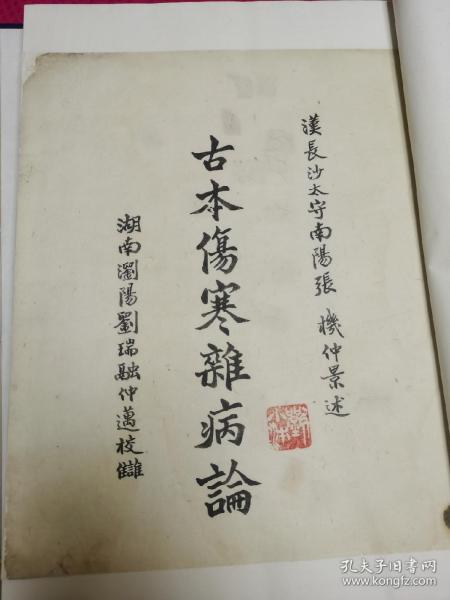 漢長沙太守南陽張 機仲景述
古本傷寒雜病論
湖南瀏陽劉瑞融仲邁校讎
孔夫子旧书网
www.kongfz.com